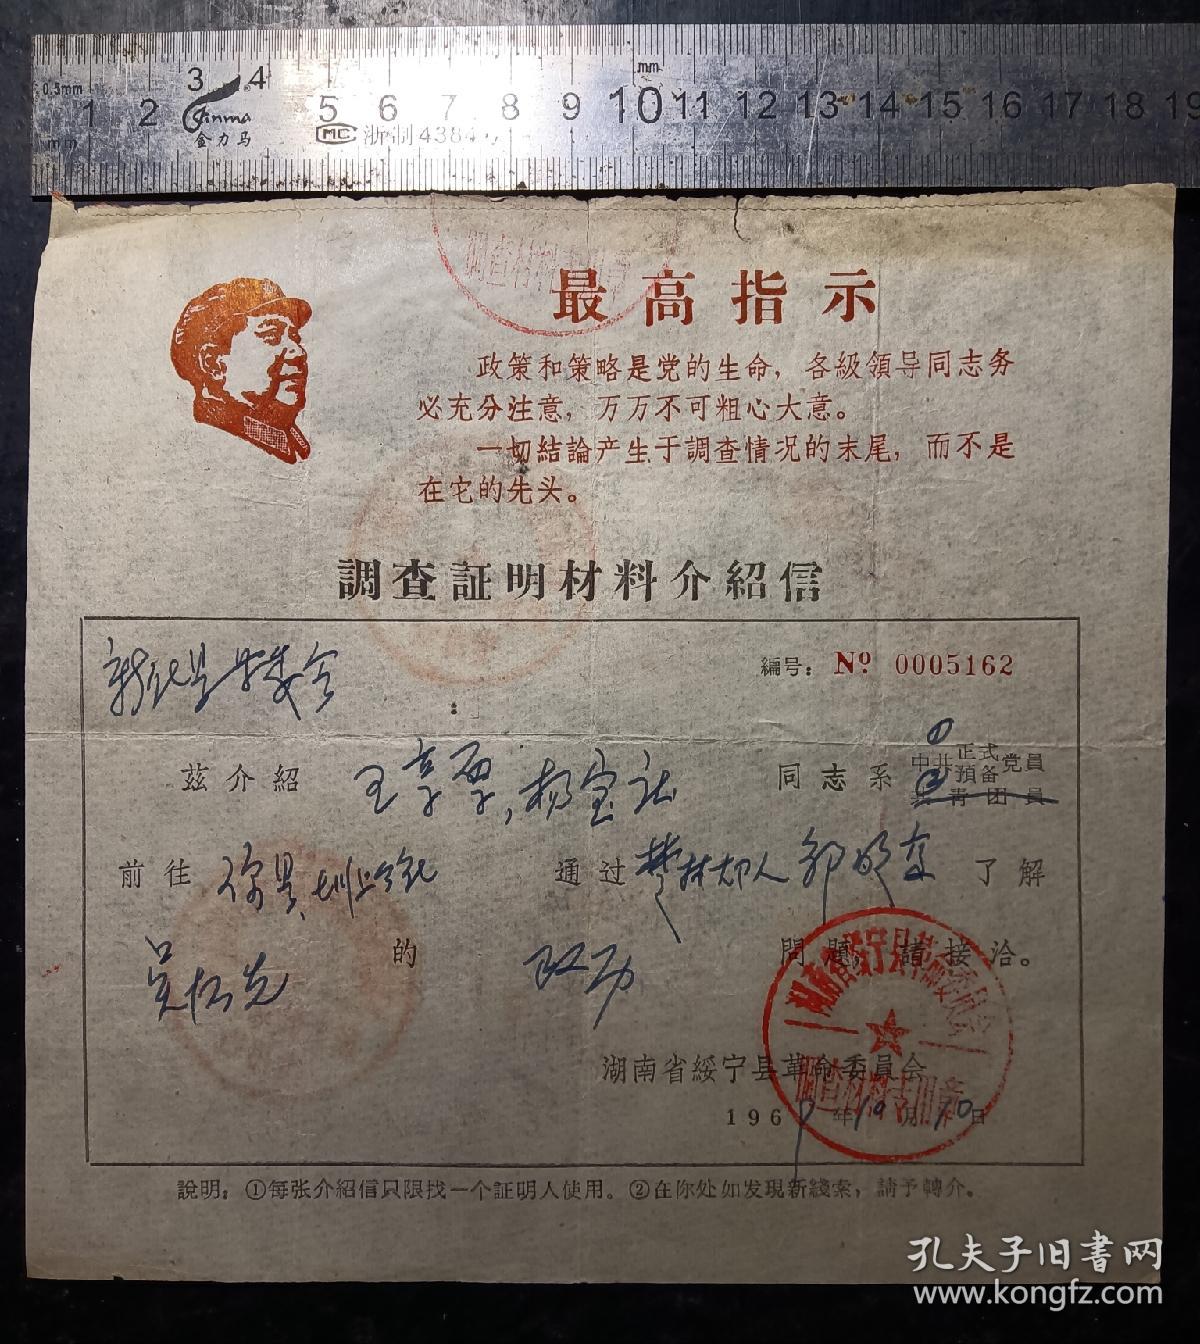 0.5mm
mm
1 2 3 4 5 6 7 8 9 10 11 12 13 14 15 16 17 18 19
mm
Jinma
金力马
MC 浙制 4384
最高指示
政策和策略是党的生命，各級領导同志务
必充分注意，万万不可粗心大意。
一切結論产生于調查情况的末尾，而不是
在它的先头。
調查証明材料介紹信
新化县革委会：
編号：№ 0005162
茲介紹 杨宝 同志系 中共正式預备党員
共青团員
前往 你县 通过 人 了解
吴 的 問題，請接洽。
湖南省綏宁县革命委員会
1969年10月10日
湖南省绥宁县革命委员会
调查材料专用章
說明：①每张介紹信只限找一个証明人使用。②在你处如发現新綫索，請予轉介。
孔夫子旧書网
www.kongfz.com